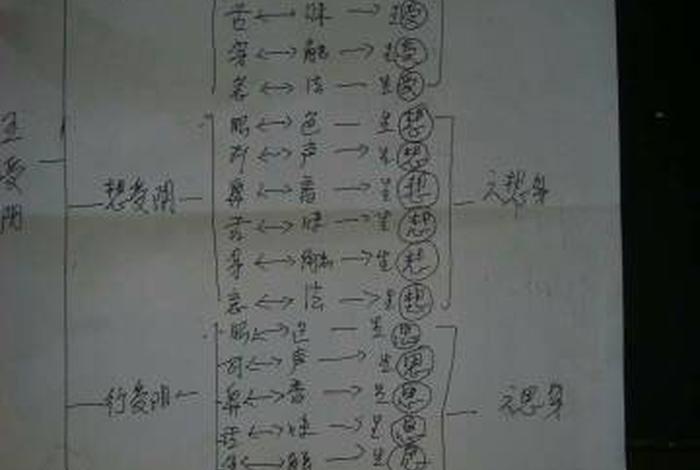 舌 ↔ 味 → 生受
身 ↔ 触 → 生受
意 ↔ 法 — 生受
五受阴
想受阴
眼 ↔ 色 — 生想
耳 ↔ 声 → 生想
鼻 ↔ 香 → 生想
舌 ↔ 味 → 生想
身 ↔ 触 → 生想
意 ↔ 法 → 生想
六想身
行受阴
眼 ↔ 色 — 生思
耳 ↔ 声 → 生思
鼻 ↔ 香 → 生思
舌 ↔ 味 → 生思
身 ↔ 触 → 生思
六思身